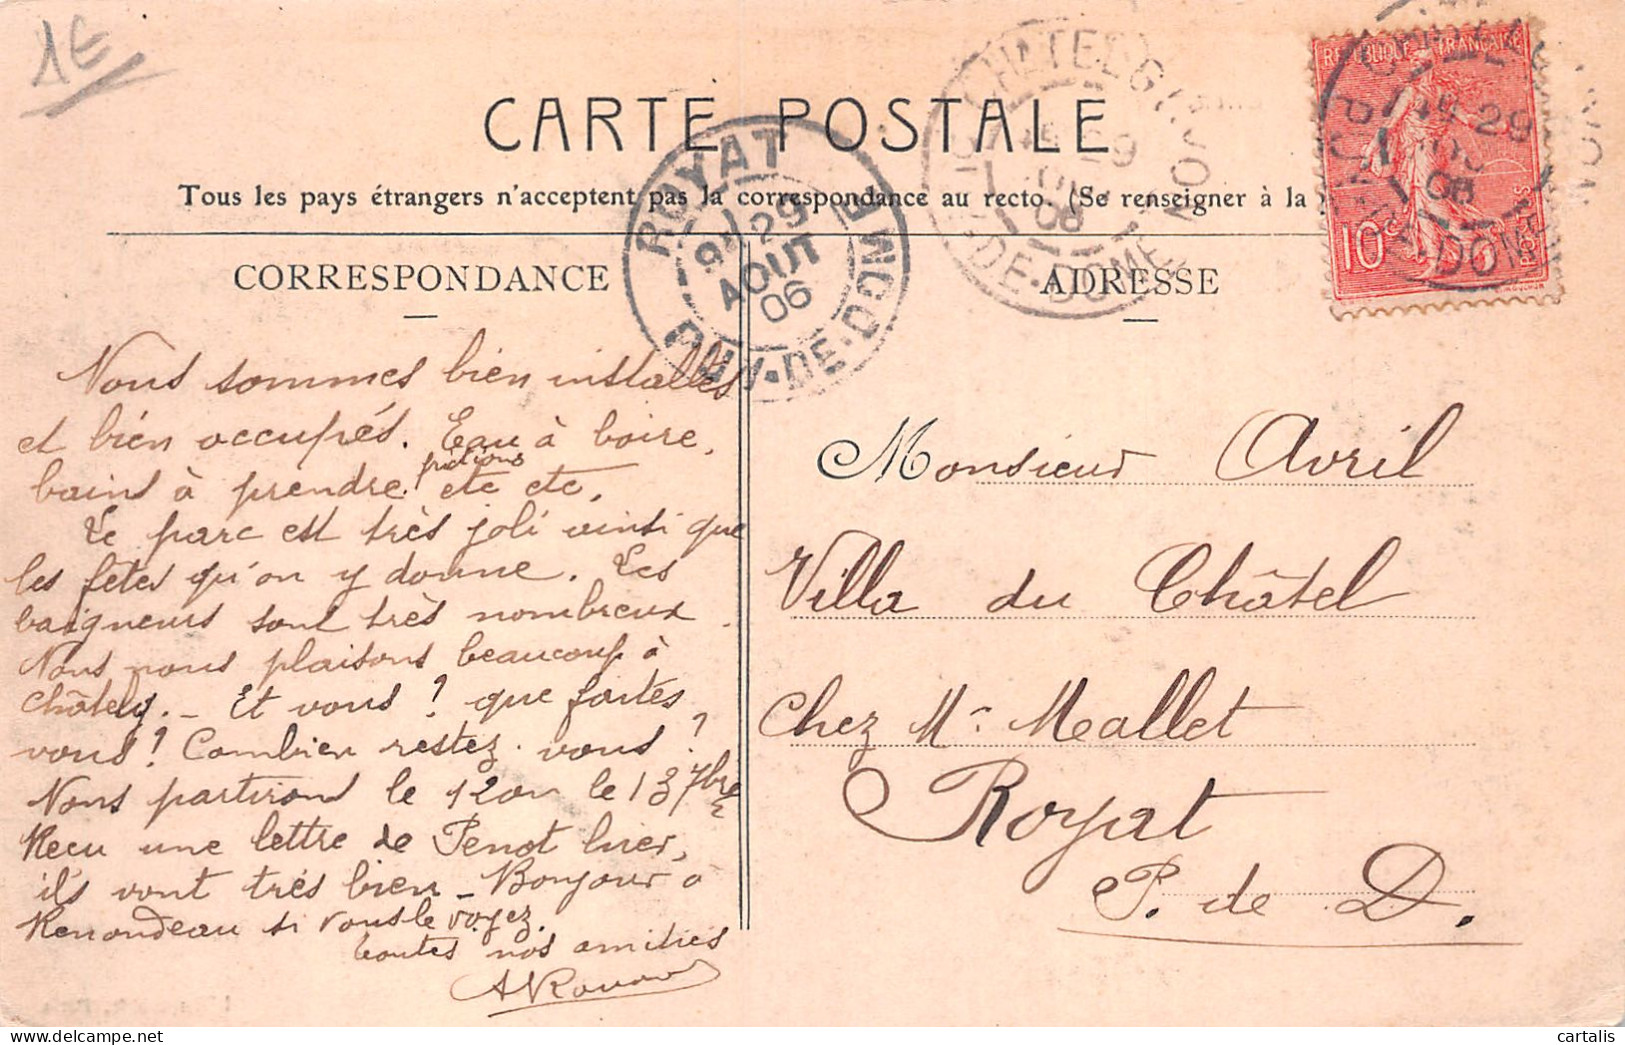 1E
CARTE POSTALE
Tous les pays étrangers n'acceptent pas la correspondance au recto. (Se renseigner à la
CORRESPONDANCE
ADRESSE
ROYAT
29
AOUT
06
PUY-DE-DOME
CHATELGUYON
29
PUY-DE-DOME
REPUBLIQUE FRANÇAISE
10c
POSTES
Nous sommes bien installés
et bien occupés. Eau à boire,
bains à prendre, frictions etc etc.
Le parc est très joli ainsi que
les fêtes qu'on y donne. Les
baigneurs sont très nombreux.
Nous nous plaisons beaucoup à
Châtelg. - Et vous? que faites
vous? Combien restez-vous?
Nous partirons le 12 ou le 13 7bre
Recu une lettre de Penot hier,
ils vont très bien - Bonjour à
Renondeau si vous le voyez.
toutes nos amitiés
Monsieur Avril
Villa du Châtel
chez Mr Mallet
Royat
P. de D.
cartalis